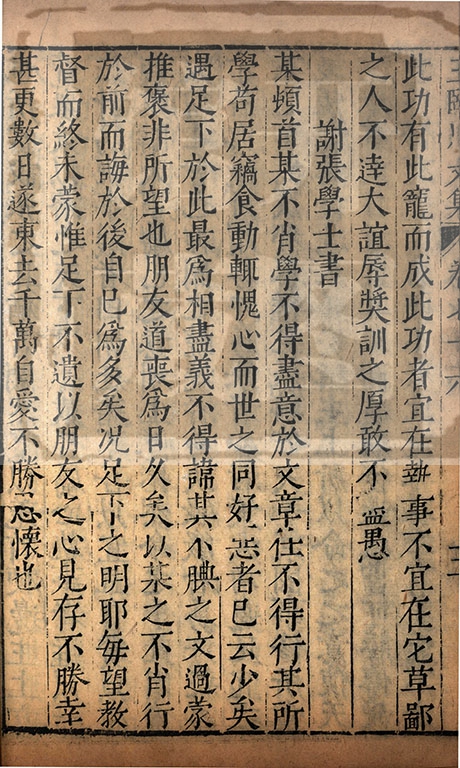 王臨川文集 卷七十六
此功有此寵而成此功者宜在執事不宜在它草鄙
之人不達大誼辱獎訓之厚敢不盡愚
謝張學士書
某頓首某不肖學不得盡意於文章仕不得行其所
學苟居竊食動輒愧心而世之同好惡者已云少矣
遇足下於此最為相盡義不得諱其不腆之文過蒙
推褒非所望也朋友道喪為日久矣以某之不肖行
於前而誨於後自已為多矣况足下之明耶每望教
督而終未蒙惟足下不遺以朋友之心見存不勝幸
甚更數日遂東去千萬自愛不勝思懷也